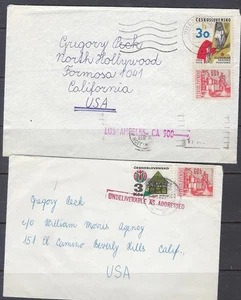 ČESKOSLOVENSKO
30
Gregory Peck
North Hollywood
Formosa 1041
California
USA
LOS ANGELES, CA 900
ČESKOSLOVENSKO
3
UNDELIVERABLE AS ADDRESSED
Gregory Peck
c/o William Morris Agency
151 El Camino Beverly Hills Calif.,
USA